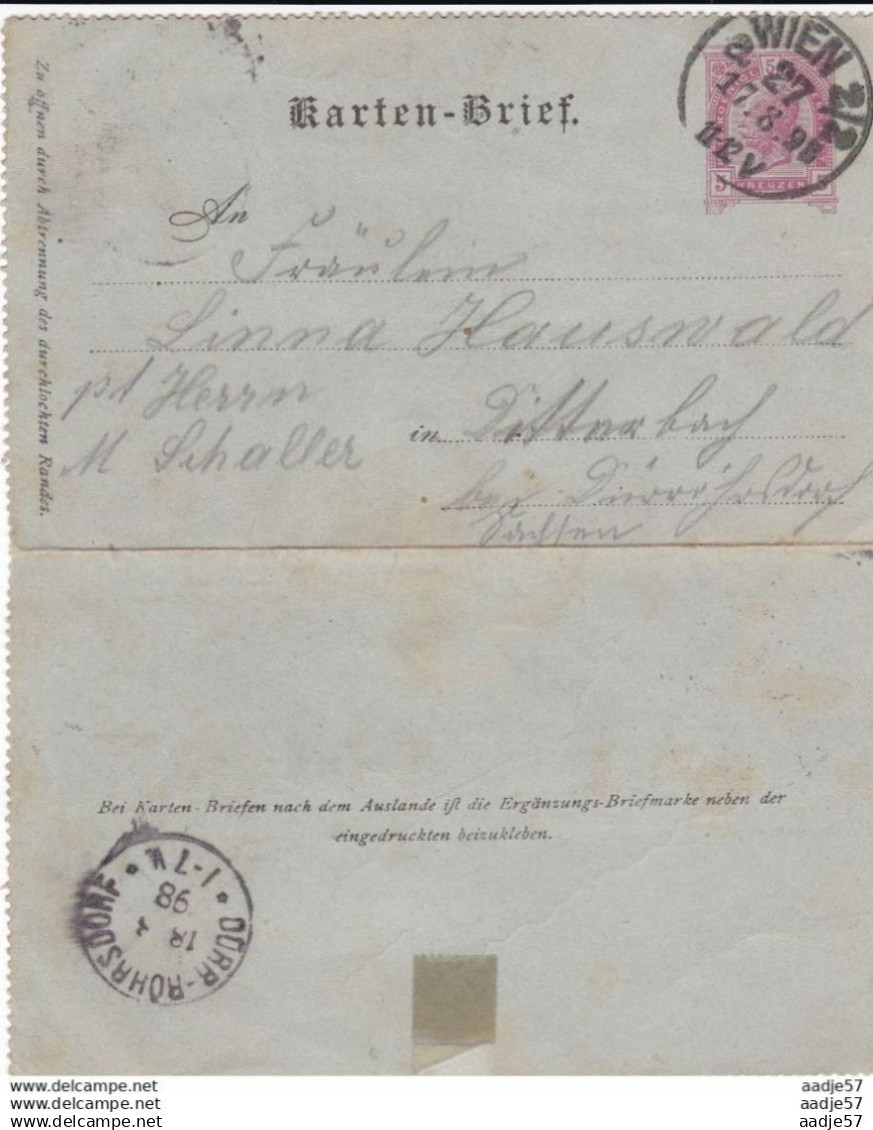 Karten-Brief.
WIEN 2/2
27
17.8.98
11-12 V
5 KREUZER
Zu öffnen durch Abtrennung des durchlochten Randes.
An
Fräulein
Linna Hauswald
pt Herrn
M Schaller
in Ditterbach
bei Dürröhrsdorf
Sachsen
Bei Karten-Briefen nach dem Auslande ist die Ergänzungs-Briefmarke neben der
eingedruckten beizukleben.
DÜRR-RÖHRSDORF
18
98
* 1-7 N *
www.delcampe.net
www.delcampe.net
www.delcampe.net
aadje57
aadje57
aadje57